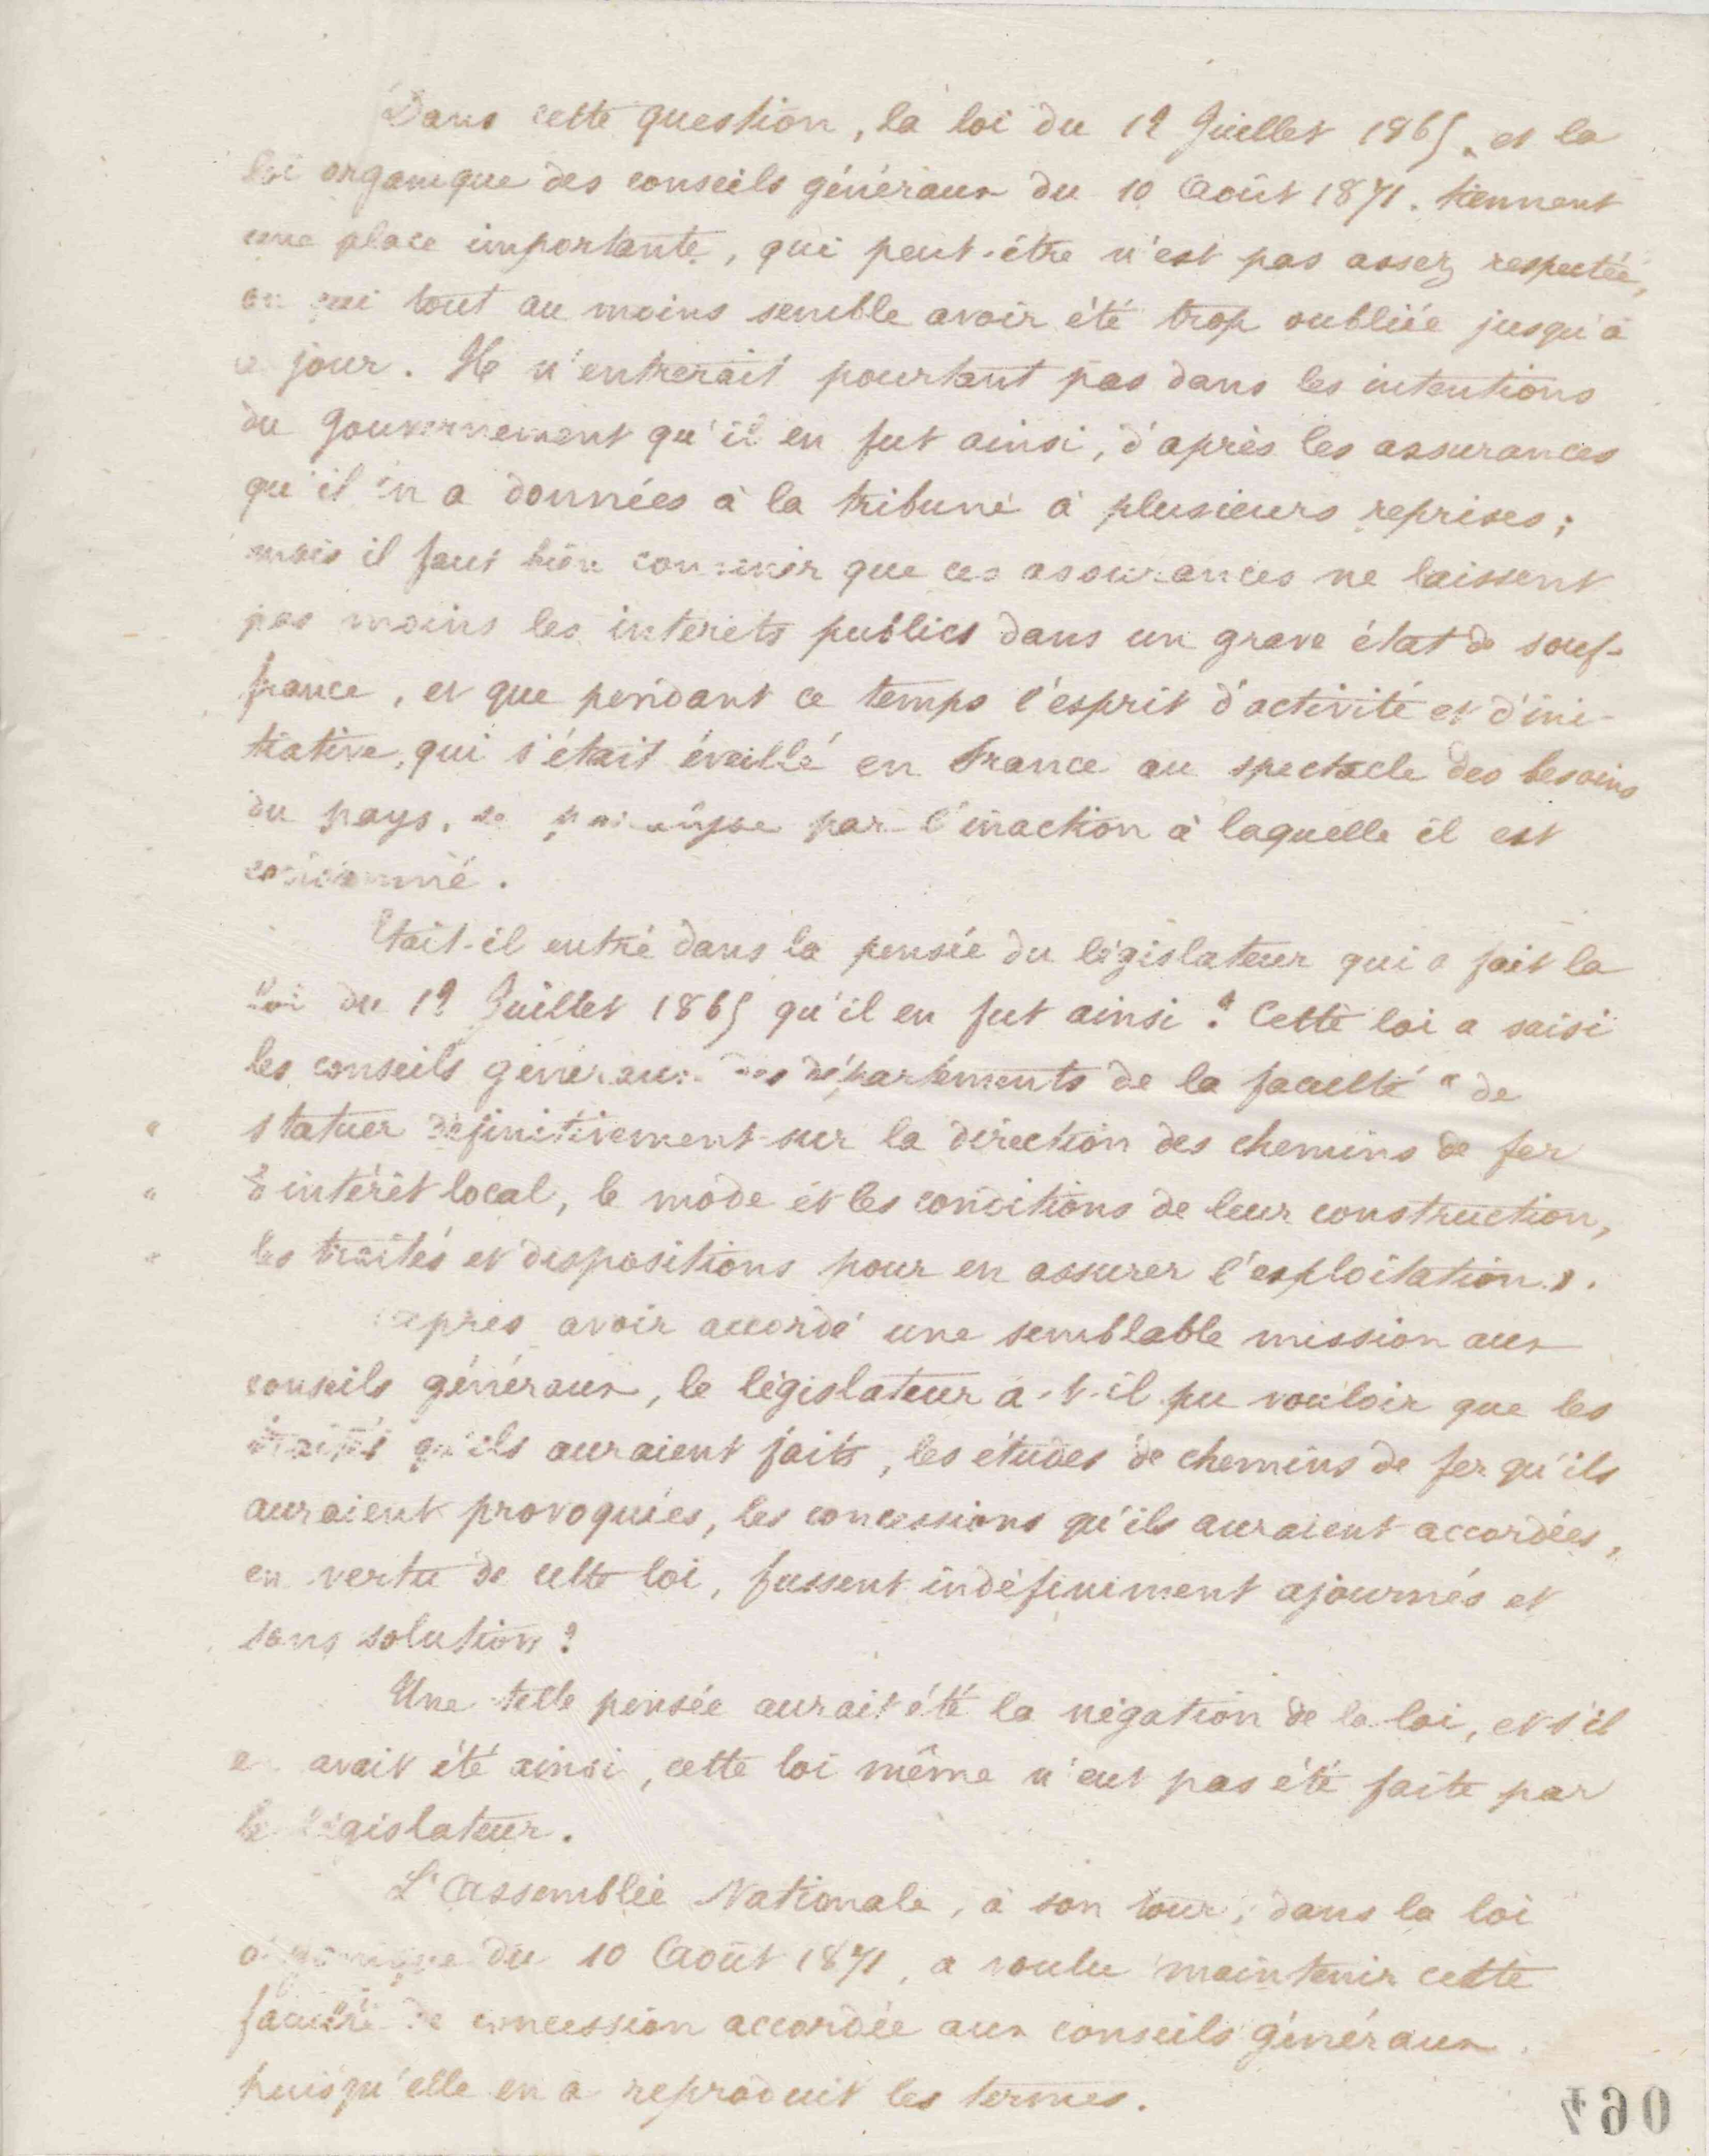 Dans cette question, la loi du 12 Juillet 1865, et la
loi organique des conseils généraux du 10 Août 1871. tiennent
une place importante, qui peut-être n'est pas assez respectée,
ou qui tout au moins semble avoir été trop oubliée jusqu'à
ce jour. Il n'entrerait pourtant pas dans les intentions
du Gouvernement qu'il en fut ainsi, d'après les assurances
qu'il en a données à la tribune à plusieurs reprises;
mais il faut bien convenir que ces assurances ne laissent
pas moins les interêts publics dans un grave état de souf-
france, et que pendant ce temps l'esprit d'activité et d'ini-
tiative, qui s'était éveillé en France au spectacle des besoins
du pays, se par l'inaction à laquelle il est
condamné.
Etait-il entré dans la pensée du législateur qui a fait la
loi du 12 Juillet 1865 qu'il en fut ainsi? Cette loi a saisi
les conseils généraux des départements de la faculté " de
" statuer définitivement sur la direction des chemins de fer
" d'intérêt local, le mode et les conditions de leur construction,
" les traités et dispositions pour en assurer l'exploitation ».
Après avoir accordé une semblable mission aux
conseils généraux, le législateur a-t-il pu vouloir que les
traités qu'ils auraient faits, les études de chemins de fer qu'ils
auraient provoquées, les concessions qu'ils auraient accordées,
en vertu de cette loi, fussent indéfiniment ajournés et
sans solution?
Une telle pensée aurait été la négation de la loi, et s'il
en avait été ainsi, cette loi même n'eut pas été faite par
le législateur.
L'Assemblée Nationale, à son tour, dans la loi
organique du 10 Août 1871, a voulu maintenir cette
faculté de concession accordée aux conseils généraux
puisqu'elle en a reproduit les termes.
064